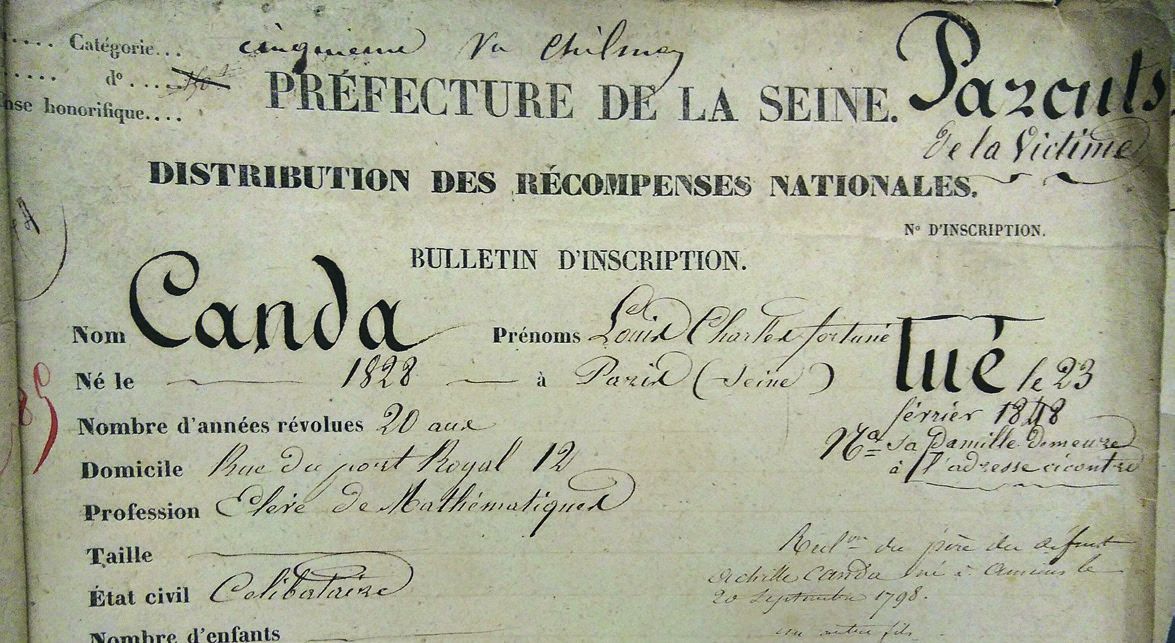 Catégorie... cinquieme
d°
nse honorifique....
PRÉFECTURE DE LA SEINE.
Parents
de la Victime
DISTRIBUTION DES RÉCOMPENSES NATIONALES.
N° D'INSCRIPTION.
BULLETIN D'INSCRIPTION.
Nom Canda Prénoms Louis Charles fortuné
tué le 23
Né le 1828 à Paris (Seine)
février 1848
Nombre d'années révolues 20 ans
Na sa famille demeure
Domicile Rue du port Royal 12
à l'adresse cicontre
Profession Elève de Mathématiques
Taille
du père du défunt
État civil Célibataire
Achille Canda né à Amiens le
20 Septembre 1798.
Nombre d'enfants
un autre fils